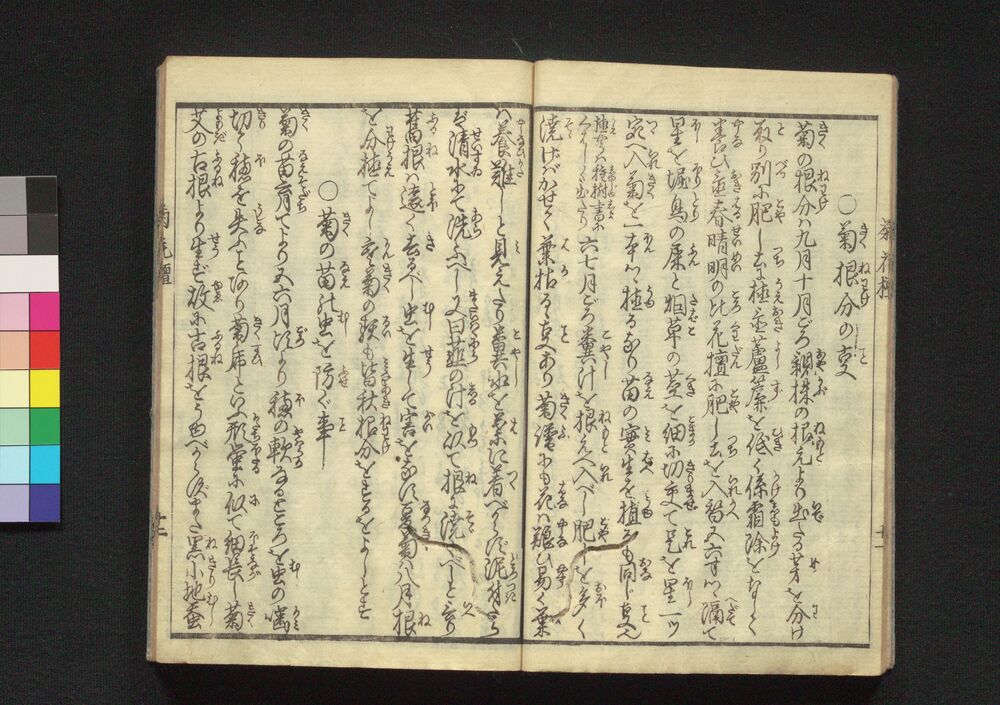 ○菊根分の事
菊の根分ハ九月十月ごろ親株の根元より出たる芽を分け
取り別に肥し土に植並蘆簾を低く係霜除をなして
養ひ置春晴明の比花壇に肥し土を入替五六寸ツヽ隔て
星を堀鳥の屎と烟草の茎を細に切交て是を星一ツ
宛へ入菊を一本ツヽ植るなり苗の實生を植るも同じ事也
六七月ごろ糞汁を根元へ入べし肥しを多く
澆げバかせて葉枯るゝ事あり菊譜にも花ハ難ひ易く葉
ハ養難しと見えたり糞水を葉に着べからず泥付たら
ば清水にて洗ふべし又曰韮の汁を以て根に澆べしと云り
舊根ハ遠く去るべし虫を生して害をなす夏菊ハ八月根
を分植てよし寒菊の類も皆秋根分をするをよしとす
○菊の苗の虫を防ぐ事
菊の苗育てより五六月頃より穂の軟なるところを虫の噛
切て穂を失ふことあり菊虎といふ形蛍に似て細長し菊
艾の古根より生ず故に古根をうゆべからずまた黒小地蚕